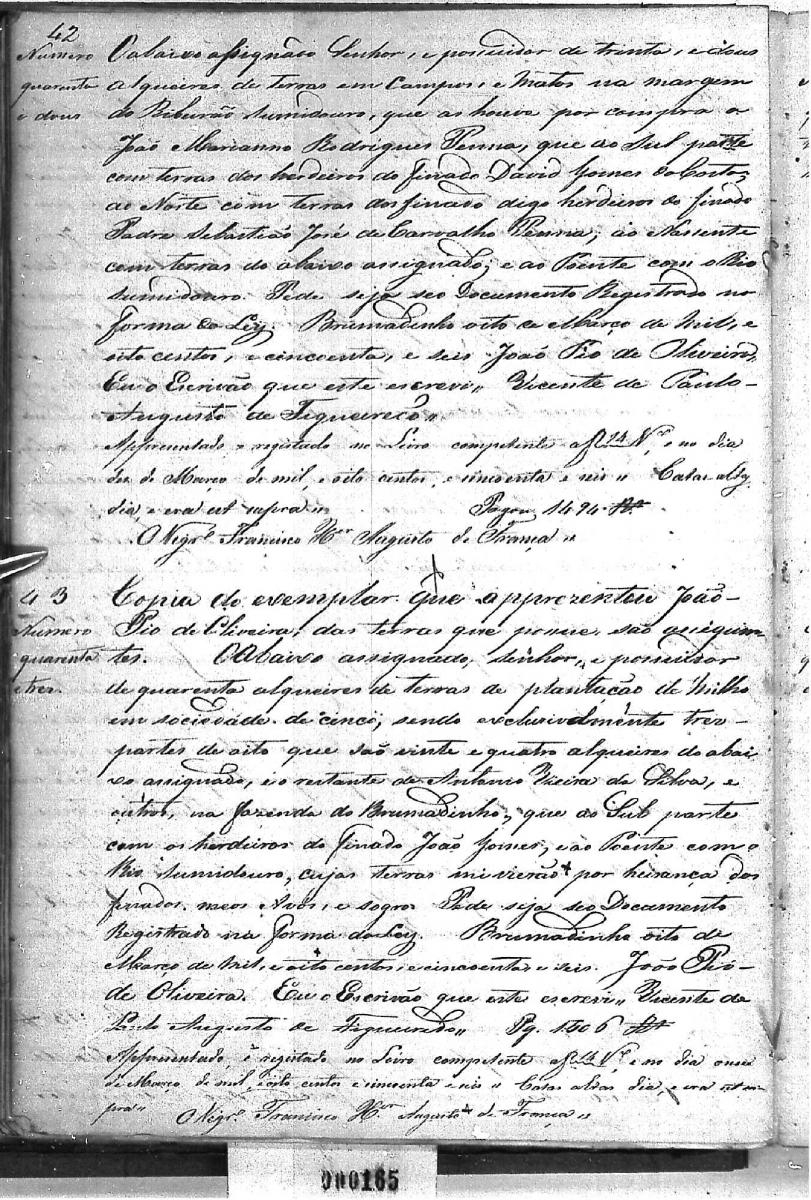 42
Numero quarenta e dous
O abaixo assignado Senhor, e possuidor de trinta, e dous
alqueires de terras em Campos, e Matos na margem
do Ribeirão Sumidouro, que as houve por compra a
João Marianno Rodrigues Penna, que ao Sul parte
com terras dos herdeiros do finado David Gomes da Costa,
ao Norte com terras dos finado digo herdeiros do finado
Padre Sebastião José de Carvalho Penna; ao Nassente
com terras do abaixo assignado; e ao Poente com o Rio
Sumidouro. Pede seja seo Documento Registrado na
forma da Ley. Brumadinho oito de Março de Mil, e
oito centos, e cincoenta, e seis João Pio de Oliveira,
Eu o Escrivão que este escrevi,, Vicente de Paulo
Augusto de Figueiredo,,
Appresentado e registado no Livro competente a f 24 Vº, e no dia
de Março de mil, e oito centos, e sincoenta e seis,, Catas altas
dia, e era ut supra,, Pagou 1494
O Negrº Francisco Xer Augusto de França,,
43
Numero quarenta e trez.
Copia do exemplar que apprezentou João
Pio de Oliveira, das terras que possue, são as seguin-
tes. O Abaixo assignado, senhor, e possuidor
de quarenta alqueires de terras de plantação de Milho
em sociedade de cinco, sendo exclusivelmente trez
partes de oito que são vinte e quatro alqueires do abai-
xo assignado, e o restante de Antonio Vieira da Silva, e
outros, na fazenda do Brumadinho, que ao Sul parte
com os herdeiros do finado João Gomes, e ao Poente com o
Rio Sumidouro, cujas terras me vierão por heirança dos
finados meos Avós, e sogro Pede seja seo Documento
Registrado na forma da Ley. Brumadinho oito de
Março de Mil, e oito centos, e cincoenta e seis. João Pio
de Oliveira. Eu o Escrivão que este escrevi,, Vicente de
Paulo Augusto de Figueiredo,, Pg. 1606
Appresentado, e registado no Livro competente a f Vº, e no dia onze
de Março de mil, e oito centos e sincoenta e seis,, Catas altas dia, e era ut su-
pra,,
O Negrº Francisco Xer Augusto de França,,
000165